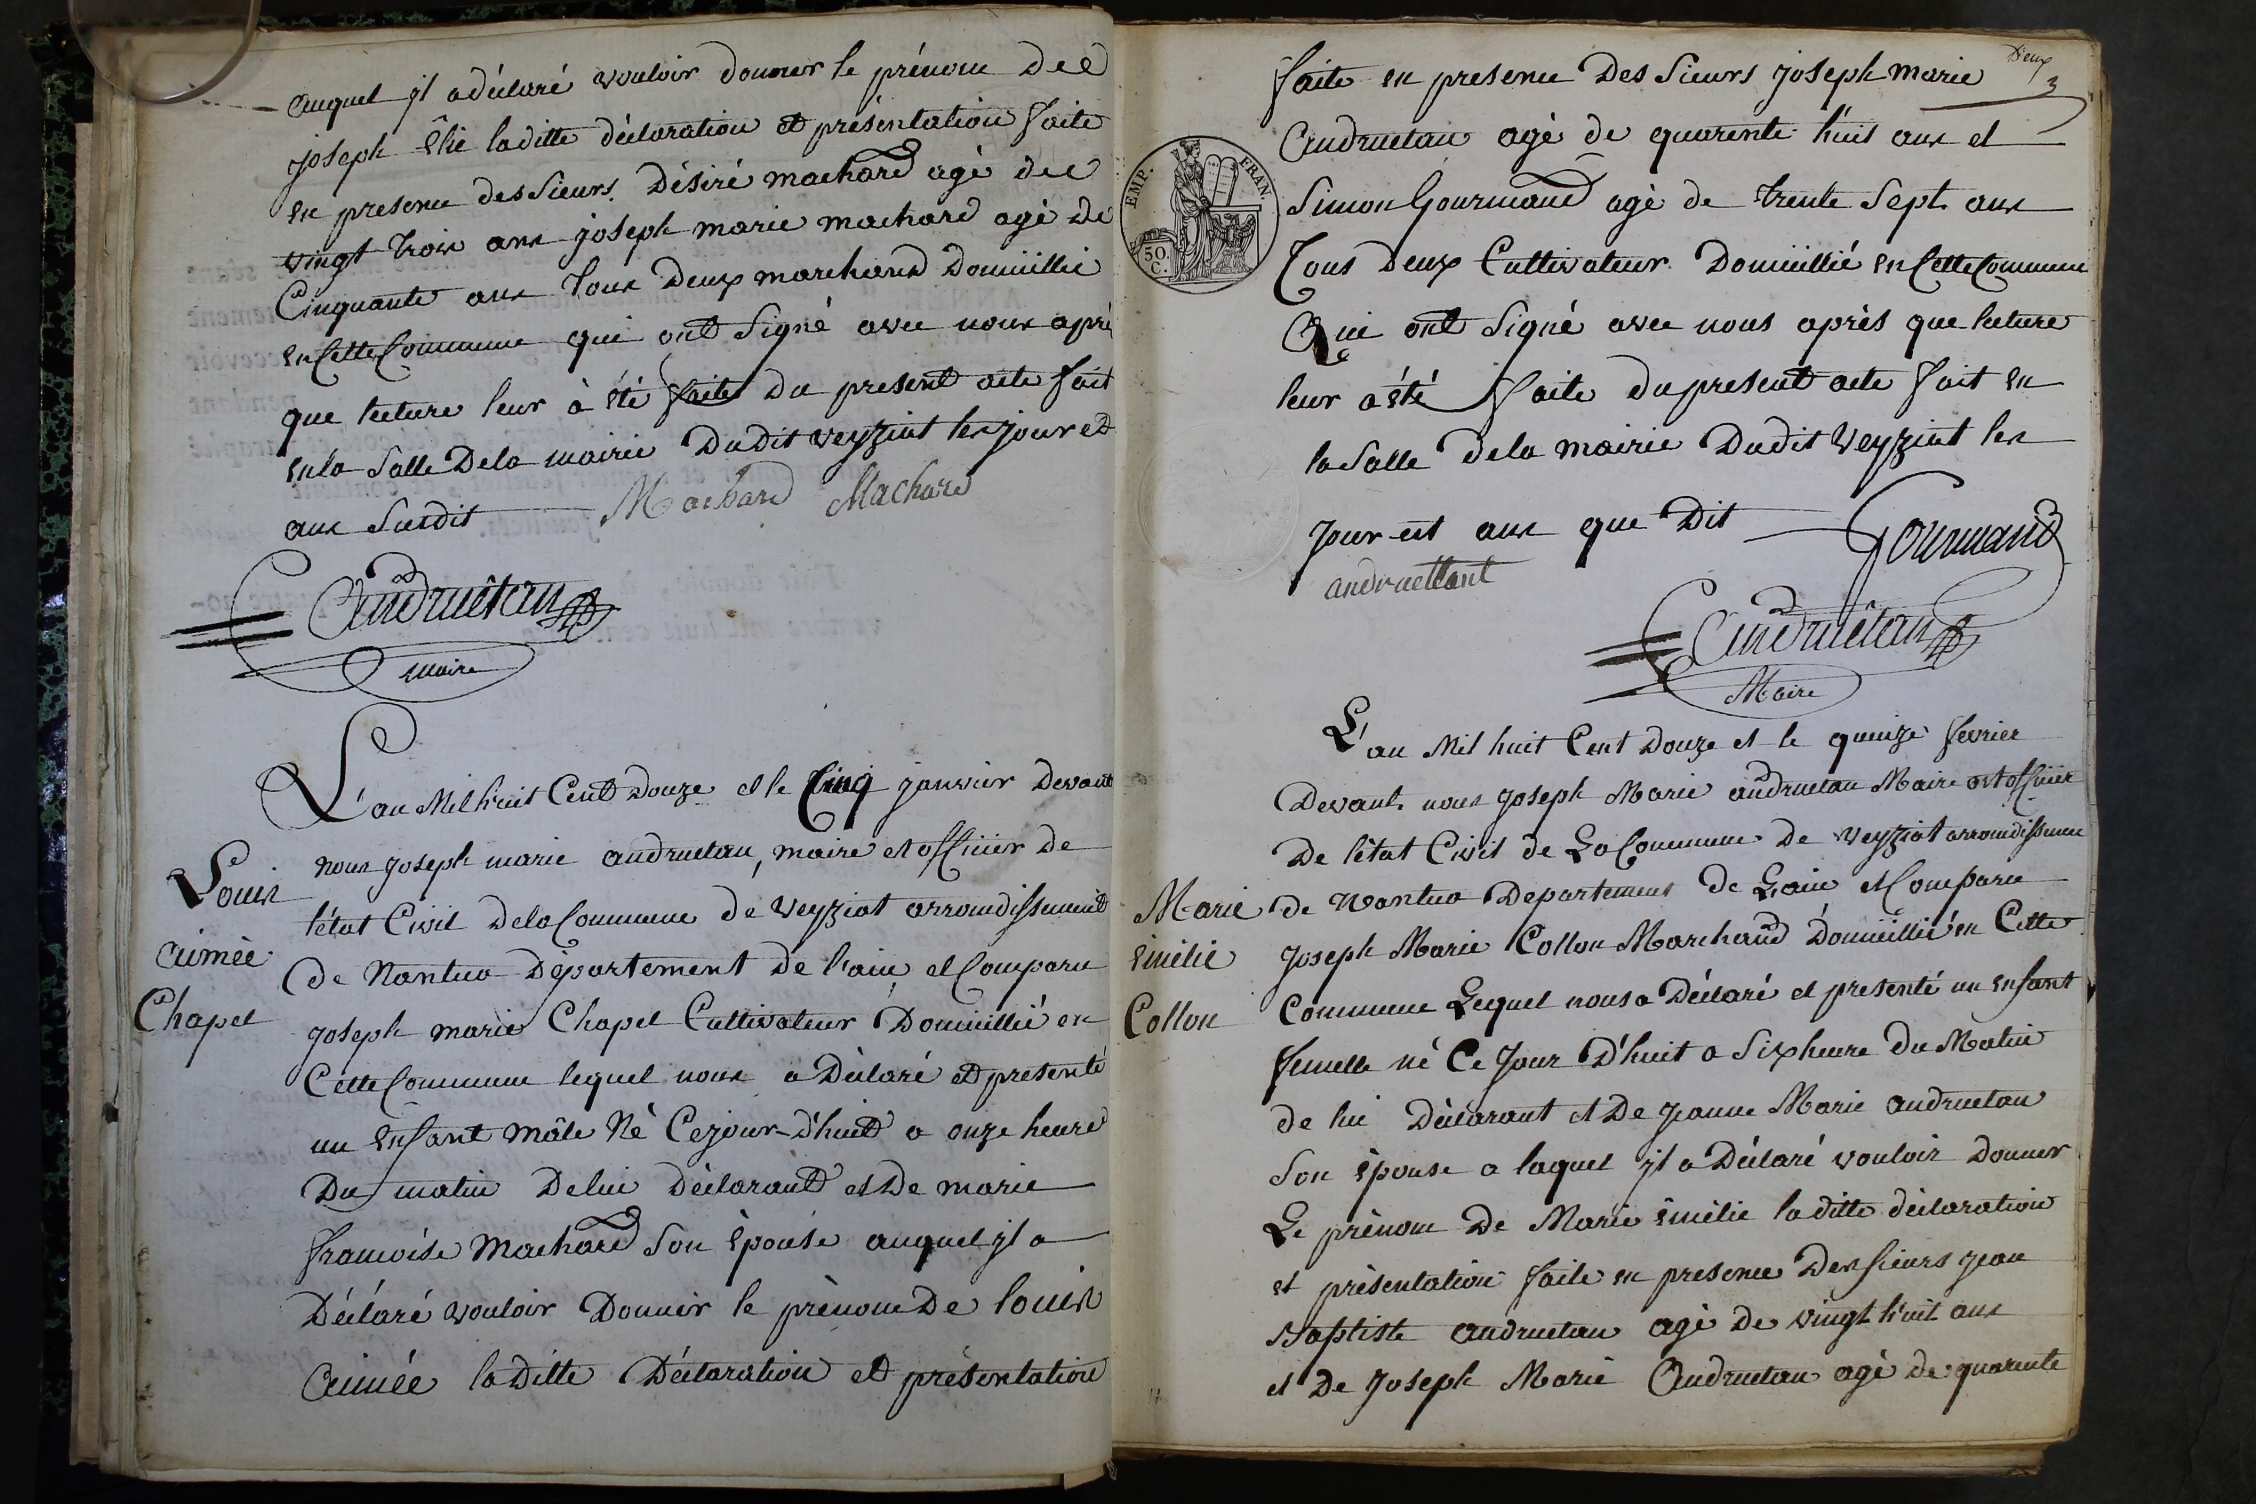 auquel jl a déclaré vouloir donner le prénom de
joseph Elie la ditte déclaration et présentation faite
en presence des Sieurs Désiré machard agé de
vingt trois ans joseph marie machard agé de
Cinquante ans tous Deux marchand Domicillié
en Cette Commune qui ont Signé avec nous aprè
que lecture leur à été faite du present acte fait
en la Salle De la mairie Dudit Veyziat les jour et
ans Susdit Machard Machard
Andruétan
maire
L'an Mil huit Cent Douze et le Cinq janvier Devant
nous joseph marie andruetan, maire et officier de
l'état Civil De la Commune de Veyziat arrondissement
de Nantua Département De l'ain, et Comparu
joseph marie Chapel Cultivateur Domicillié en
Cette Commune lequel nous a Déclaré et presenté
un Enfant mâle Né Cejour-D'huit a onze heure
Du matin De lui Déclarant et De marie
francoise Machard Son Epouse auquel jl a
Déclaré vouloir Donner le prénom De louis
Aimée la Ditte Déclaration et présentation
Louis
aimée
Chapel
Deux
2
faite en presence Des Sieurs joseph marie
Andruetan agé de quarente huit ans et
Simon Gourmand agé de trente Sept ans
Tous Deux Cultivateur Domicillié en Cette Commune
Qui ont Signé avec nous après que lecture
leur a été faite du present acte fait en
la Salle de la mairie Dudit Veyziat les
Jour et ans que Dit Gourmand
andruettant
Andruétan
Maire
EMP. FRAN.
50.
C.
L'an Mil huit Cent Douze et le quinze fevrier
Devant nous joseph Marie andruetan Maire et officier
De l'état Civil de La Commune de Veyziat arrondissement
de Nantua Departement de L'ain et Comparu
joseph Marie Collon Marchand Domicillié en Cette
Commune Lequel nous a Déclaré et presenté un enfant
femelle né Ce Jour D'huit a Six heure Du Matin
de lui Déclarant et De jeanne Marie andruetan
Son épouse a laquel jl a Déclaré vouloir Donner
Le prénom De Marie émélie la ditte déclaration
et présentation faite en presence Des Sieurs jean
Baptiste andruetan agé De vingt huit ans
et De joseph Marie Andruetan agé de quarente
Marie
émélie
Collon